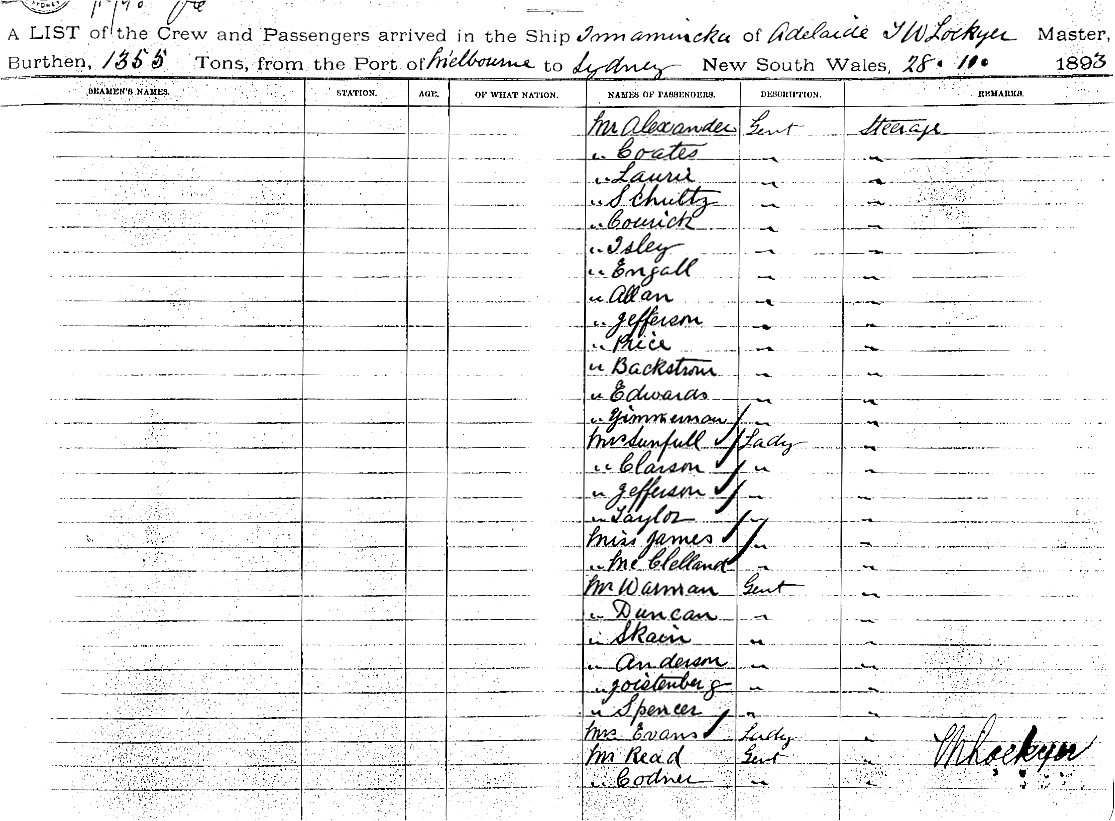 SYDNEY
A LIST of the Crew and Passengers arrived in the Ship Innamincka of Adelaide T W Lockyer Master,
Burthen, 1355 Tons, from the Port of Melbourne to Sydney New South Wales, 28. 10. 1893
SEAMEN'S NAMES. STATION. AGE. OF WHAT NATION. NAMES OF PASSENGERS. DESCRIPTION. REMARKS.
Mr Alexander Gent Steerage
" Coates " "
" Laurie " "
" Schultz " "
" Cowrick " "
" Isley " "
" Engall " "
" Allan " "
" Jefferson " "
" Price " "
" Backstrom " "
" Edwards " "
" Zimmerman " "
Mrs Lady "
" Clarson " "
" Jefferson " "
" Taylor " "
Miss James " "
" McClelland " "
Mr Warman Gent "
" Duncan " "
" Skain " "
" Anderson " "
" " "
" Spencer " "
Mrs Evans Lady "
Mr Read Gent " T W Lockyer
" Codner " "